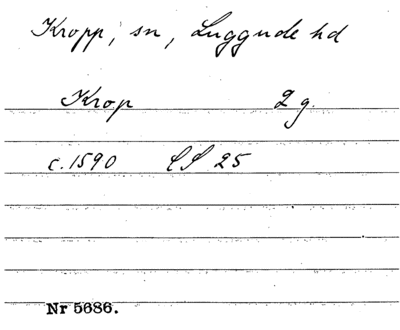 Kropp, sn, Luggude hd
Krop 2 g.
c. 1590 CS 25
Nr 5686.